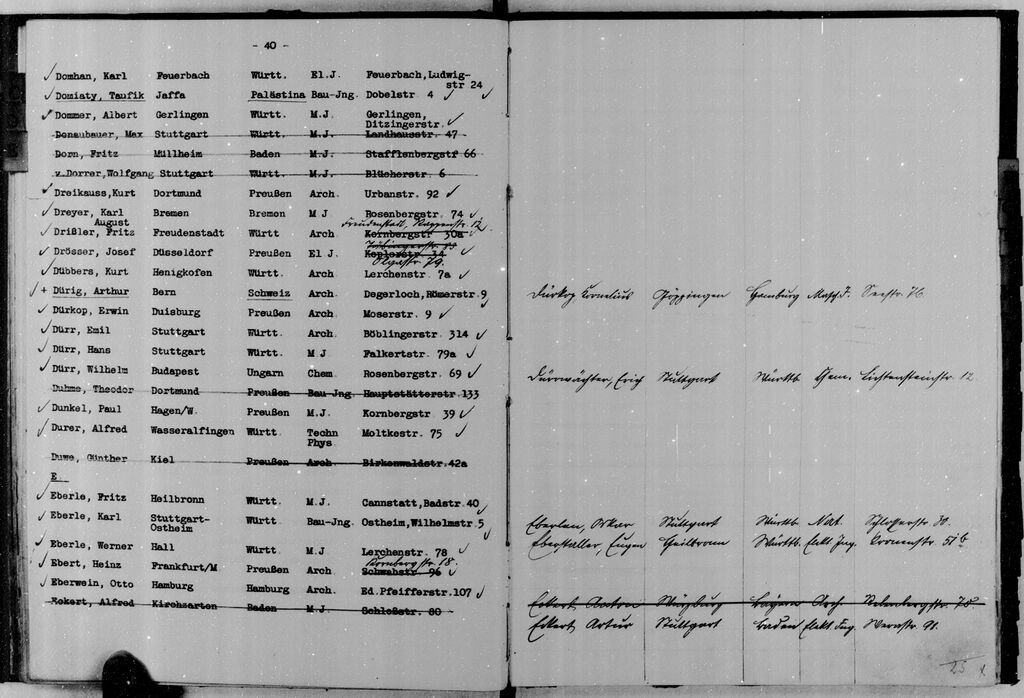 - 40 -
✓ Domhan, Karl Feuerbach Württ. El.J. Feuerbach,Ludwig-
str 24
✓ Domiaty, Taufik Jaffa Palästina Bau-Jng. Dobelstr 4 ✓ ✓
✓ Dommer, Albert Gerlingen Württ. M.J. Gerlingen,
Ditzingerstr. ✓
Donaubauer, Max Stuttgart Württ. M.J. Landhausstr. 47
Dorn, Fritz Müllheim Baden M.J. Stafflenbergstr 66
v.Dorrer,Wolfgang Stuttgart Württ. M.J. Blücherstr. 6
✓ Dreikauss,Kurt Dortmund Preußen Arch. Urbanstr. 92 ✓
✓ Dreyer, Karl Bremen Bremen M J Rosenbergstr. 74 ✓
August Freudenstadt, Rappenstr. 12
✓ Drißler, Fritz Freudenstadt Württ Arch Kornbergstr 30a ✓
Tübingerstr. 93
✓ Drösser, Josef Düsseldorf Preußen El J. Keplerstr 34 ✓
Olgastr. 79.
✓ Dübbers, Kurt Henigkofen Württ. Arch Lerchenstr. 7a ✓
✓ + Dürig, Arthur Bern Schweiz Arch. Degerloch,Römerstr.9
✓ Dürkop, Erwin Duisburg Preußen Arch. Moserstr. 9 ✓
✓ Dürr, Emil Stuttgart Württ. Arch. Böblingerstr. 314 ✓
✓ Dürr, Hans Stuttgart Württ. M J Falkertstr. 79a ✓
✓ Dürr, Wilhelm Budapest Ungarn Chem. Rosenbergstr. 69 ✓
Duhme, Theodor Dortmund Preußen Bau-Jng Hauptstätterstr.133
✓ Dunkel, Paul Hagen/W. Preußen M.J. Kornbergstr 39 ✓
✓ Durer, Alfred Wasseralfingen Württ Techn Moltkestr. 75 ✓
Phys
Duwe, Günther Kiel Preußen Arch. Birkenwaldstr.42a
E.
✓ Eberle, Fritz Heilbronn Württ. M.J. Cannstatt,Badstr.40 ✓
✓ Eberle, Karl Stuttgart- Württ Bau-Jng. Ostheim,Wilhelmstr.5 ✓
Ostheim
✓ Eberle, Werner Hall Württ. M.J Lerchenstr. 78 ✓
Kornbergstr. 18.
✓ Ebert, Heinz Frankfurt/M Preußen Arch Schwabstr 96 ✓
✓ Eberwein, Otto Hamburg Hamburg Arch. Ed.Pfeifferstr.107 ✓
Eckert, Alfred Kirchzarten Baden M.J Schloßstr. 80
Dürkop Cornelius Göppingen Hamburg Masch.J. Seestr. 76
Dürrwächter, Erich Stuttgart Württb. Chem. Lichtensteinstr. 12
Eberlen, Oskar Stuttgart Württb. Nat. Schloßerstr. 30.
Eberstaller, Eugen Heilbronn Württb. Elekt. Ing. Kronenstr. 51b
Eckert Anton Würzburg Bayern Arch. Relenbergstr. 78
Eckert Artur Stuttgart Baden Elekt Ing. Werastr. 91.
25